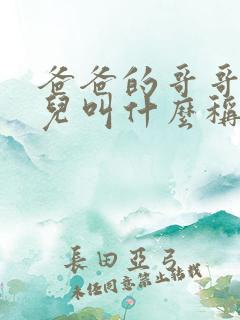 爸爸的哥哥
兒叫什麼稱
長田亞弓
未經同意禁止轉載